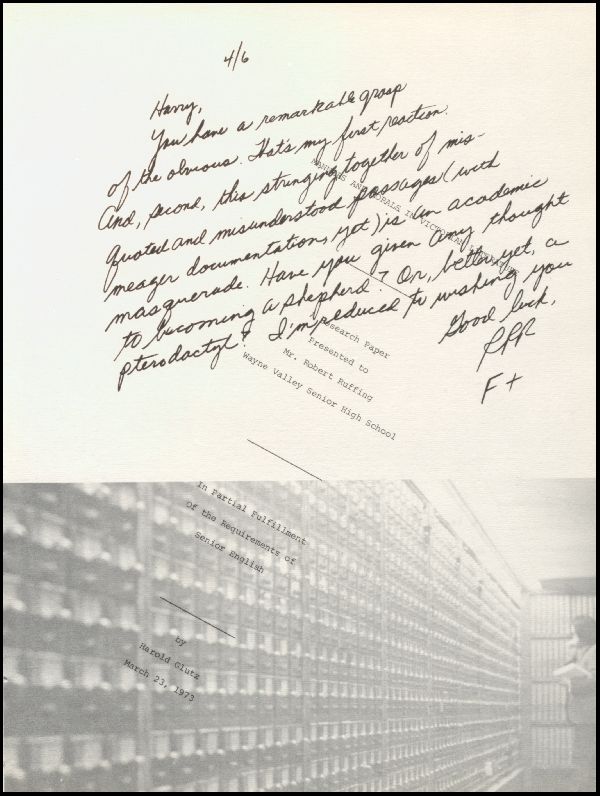 4/6
Harry,
You have a remarkable grasp
of the obvious. That's my first reaction.
And, second, this stringing together of mis-
quoted and misunderstood passages (with
meager documentation, yet) is an academic
masquerade. Have you given any thought
to becoming a shepherd? Or, better yet, a
pterodactyl? I'm reduced to wishing you
Good luck,
RPR
F+
MANNERS AND MORALS IN VICTORIAN
Research Paper
Presented to
Mr. Robert Ruffing
Wayne Valley Senior High School
In Partial Fulfillment
Of the Requirements of
Senior English
by
Harold Glutz
March 23, 1973